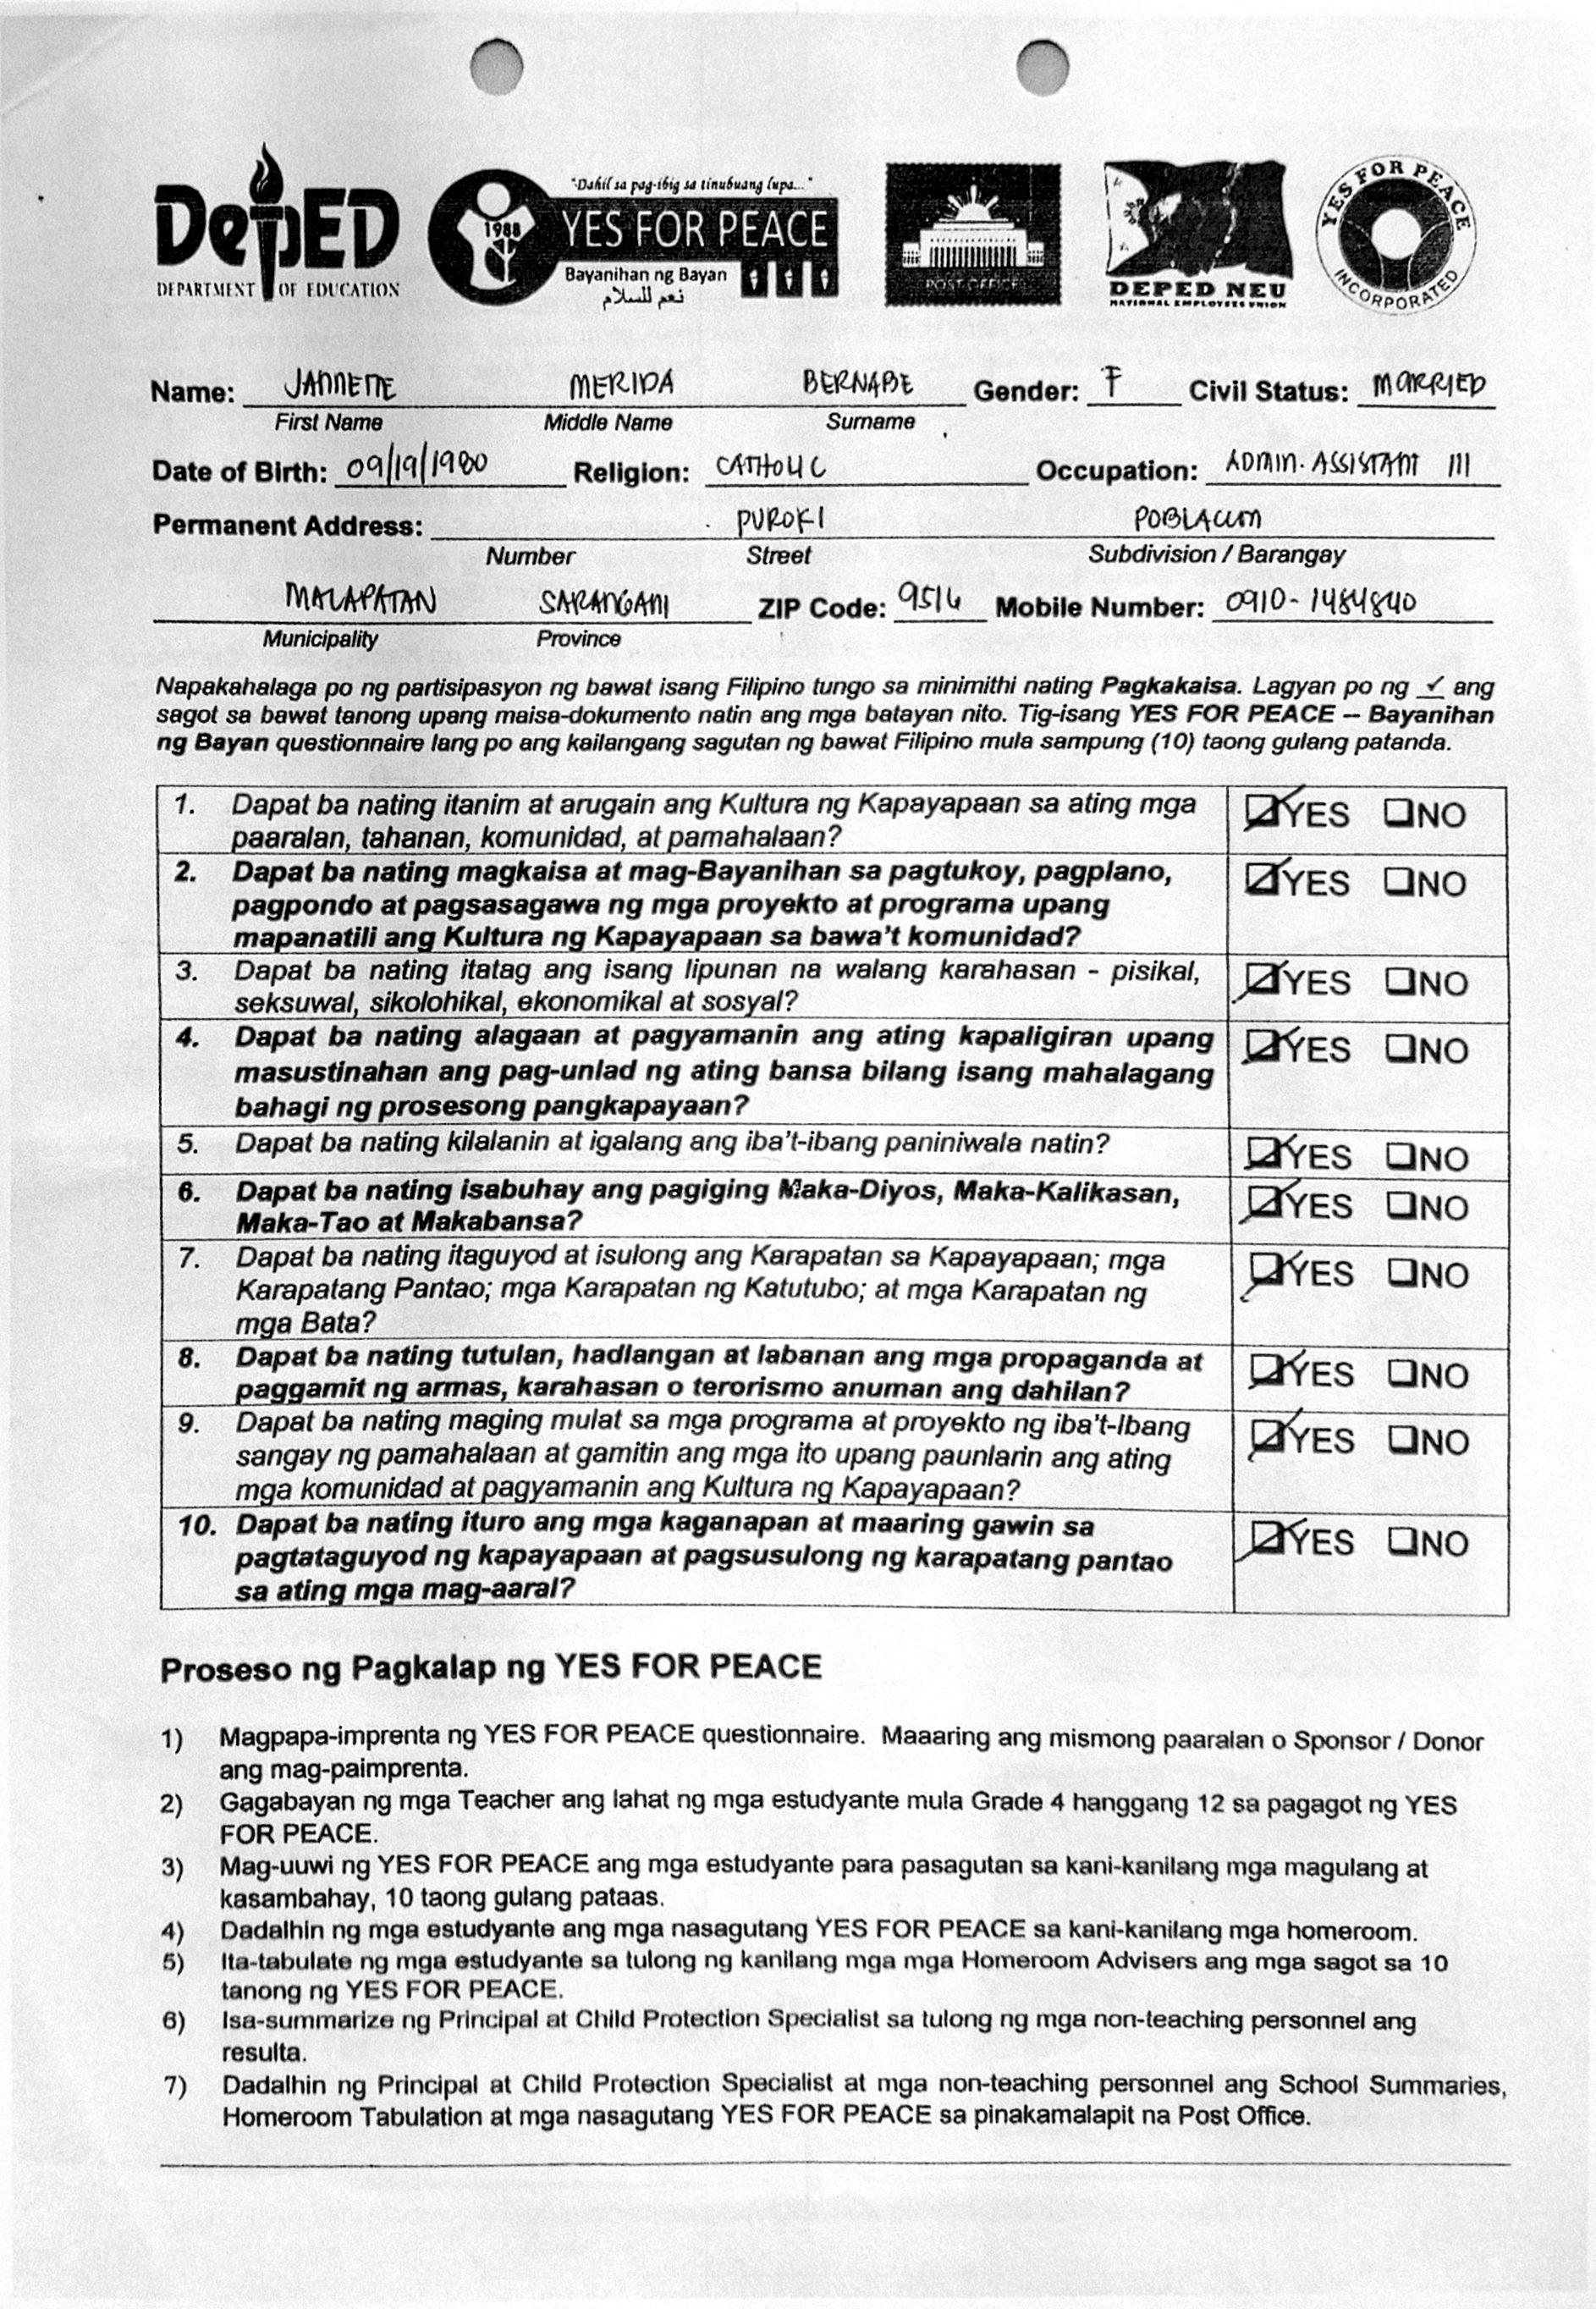 DepED
DEPARTMENT OF EDUCATION
"Dahil sa pag-ibig sa tinubuang lupa..."
1988
YES FOR PEACE
Bayanihan ng Bayan
نعم للسلام
POST OFFICE
DEPED NEU
NATIONAL EMPLOYEES UNION
YES FOR PEACE
INCORPORATED
Name: JANNETTE MERIDA BERNABE Gender: F Civil Status: MARRIED
First Name Middle Name Surname
Date of Birth: 09/19/1980 Religion: CATHOLIC Occupation: ADMIN. ASSISTANT III
Permanent Address: PUROK 1 POBLACION
Number Street Subdivision / Barangay
MALAPATAN SARANGANI ZIP Code: 9516 Mobile Number: 0910-1484840
Municipality Province
Napakahalaga po ng partisipasyon ng bawat isang Filipino tungo sa minimithi nating Pagkakaisa. Lagyan po ng ✓ ang
sagot sa bawat tanong upang maisa-dokumento natin ang mga batayan nito. Tig-isang YES FOR PEACE -- Bayanihan
ng Bayan questionnaire lang po ang kailangang sagutan ng bawat Filipino mula sampung (10) taong gulang patanda.
1. Dapat ba nating itanim at arugain ang Kultura ng Kapayapaan sa ating mga YES NO
paaralan, tahanan, komunidad, at pamahalaan?
2. Dapat ba nating magkaisa at mag-Bayanihan sa pagtukoy, pagplano, YES NO
pagpondo at pagsasagawa ng mga proyekto at programa upang
mapanatili ang Kultura ng Kapayapaan sa bawa't komunidad?
3. Dapat ba nating itatag ang isang lipunan na walang karahasan - pisikal, YES NO
seksuwal, sikolohikal, ekonomikal at sosyal?
4. Dapat ba nating alagaan at pagyamanin ang ating kapaligiran upang YES NO
masustinahan ang pag-unlad ng ating bansa bilang isang mahalagang
bahagi ng prosesong pangkapayaan?
5. Dapat ba nating kilalanin at igalang ang iba't-ibang paniniwala natin? YES NO
6. Dapat ba nating isabuhay ang pagiging Maka-Diyos, Maka-Kalikasan, YES NO
Maka-Tao at Makabansa?
7. Dapat ba nating itaguyod at isulong ang Karapatan sa Kapayapaan; mga YES NO
Karapatang Pantao; mga Karapatan ng Katutubo; at mga Karapatan ng
mga Bata?
8. Dapat ba nating tutulan, hadlangan at labanan ang mga propaganda at YES NO
paggamit ng armas, karahasan o terorismo anuman ang dahilan?
9. Dapat ba nating maging mulat sa mga programa at proyekto ng iba't-Ibang YES NO
sangay ng pamahalaan at gamitin ang mga ito upang paunlarin ang ating
mga komunidad at pagyamanin ang Kultura ng Kapayapaan?
10. Dapat ba nating ituro ang mga kaganapan at maaring gawin sa YES NO
pagtataguyod ng kapayapaan at pagsusulong ng karapatang pantao
sa ating mga mag-aaral?
Proseso ng Pagkalap ng YES FOR PEACE
1) Magpapa-imprenta ng YES FOR PEACE questionnaire. Maaaring ang mismong paaralan o Sponsor / Donor
ang mag-paimprenta.
2) Gagabayan ng mga Teacher ang lahat ng mga estudyante mula Grade 4 hanggang 12 sa pagagot ng YES
FOR PEACE.
3) Mag-uuwi ng YES FOR PEACE ang mga estudyante para pasagutan sa kani-kanilang mga magulang at
kasambahay, 10 taong gulang pataas.
4) Dadalhin ng mga estudyante ang mga nasagutang YES FOR PEACE sa kani-kanilang mga homeroom.
5) Ita-tabulate ng mga estudyante sa tulong ng kanilang mga mga Homeroom Advisers ang mga sagot sa 10
tanong ng YES FOR PEACE.
6) Isa-summarize ng Principal at Child Protection Specialist sa tulong ng mga non-teaching personnel ang
resulta.
7) Dadalhin ng Principal at Child Protection Specialist at mga non-teaching personnel ang School Summaries,
Homeroom Tabulation at mga nasagutang YES FOR PEACE sa pinakamalapit na Post Office.